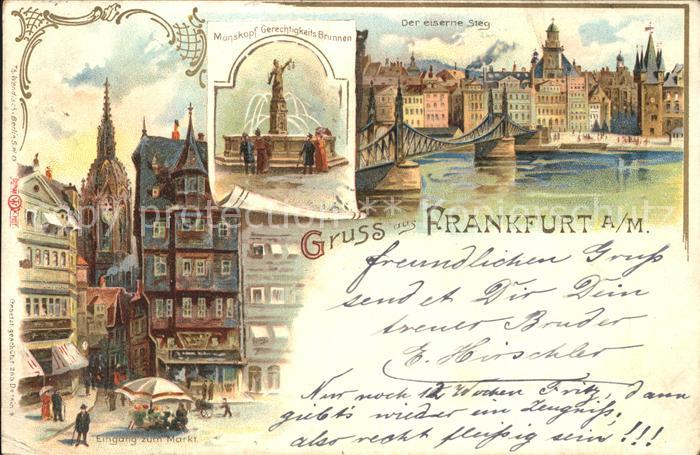 Der eiserne Steg
Manskopf Gerechtigkeits Brunnen
Gruss aus FRANKFURT A/M.
freundlichen Gruß
sendet Dir Dein
treuer Bruder
E. Hirschler
Nur noch 12 Wochen Fritz, dann
gibt's wieder ein Zeugniß,
also recht fleißig sein!!!
Eingang zum Markt.
copyright protection